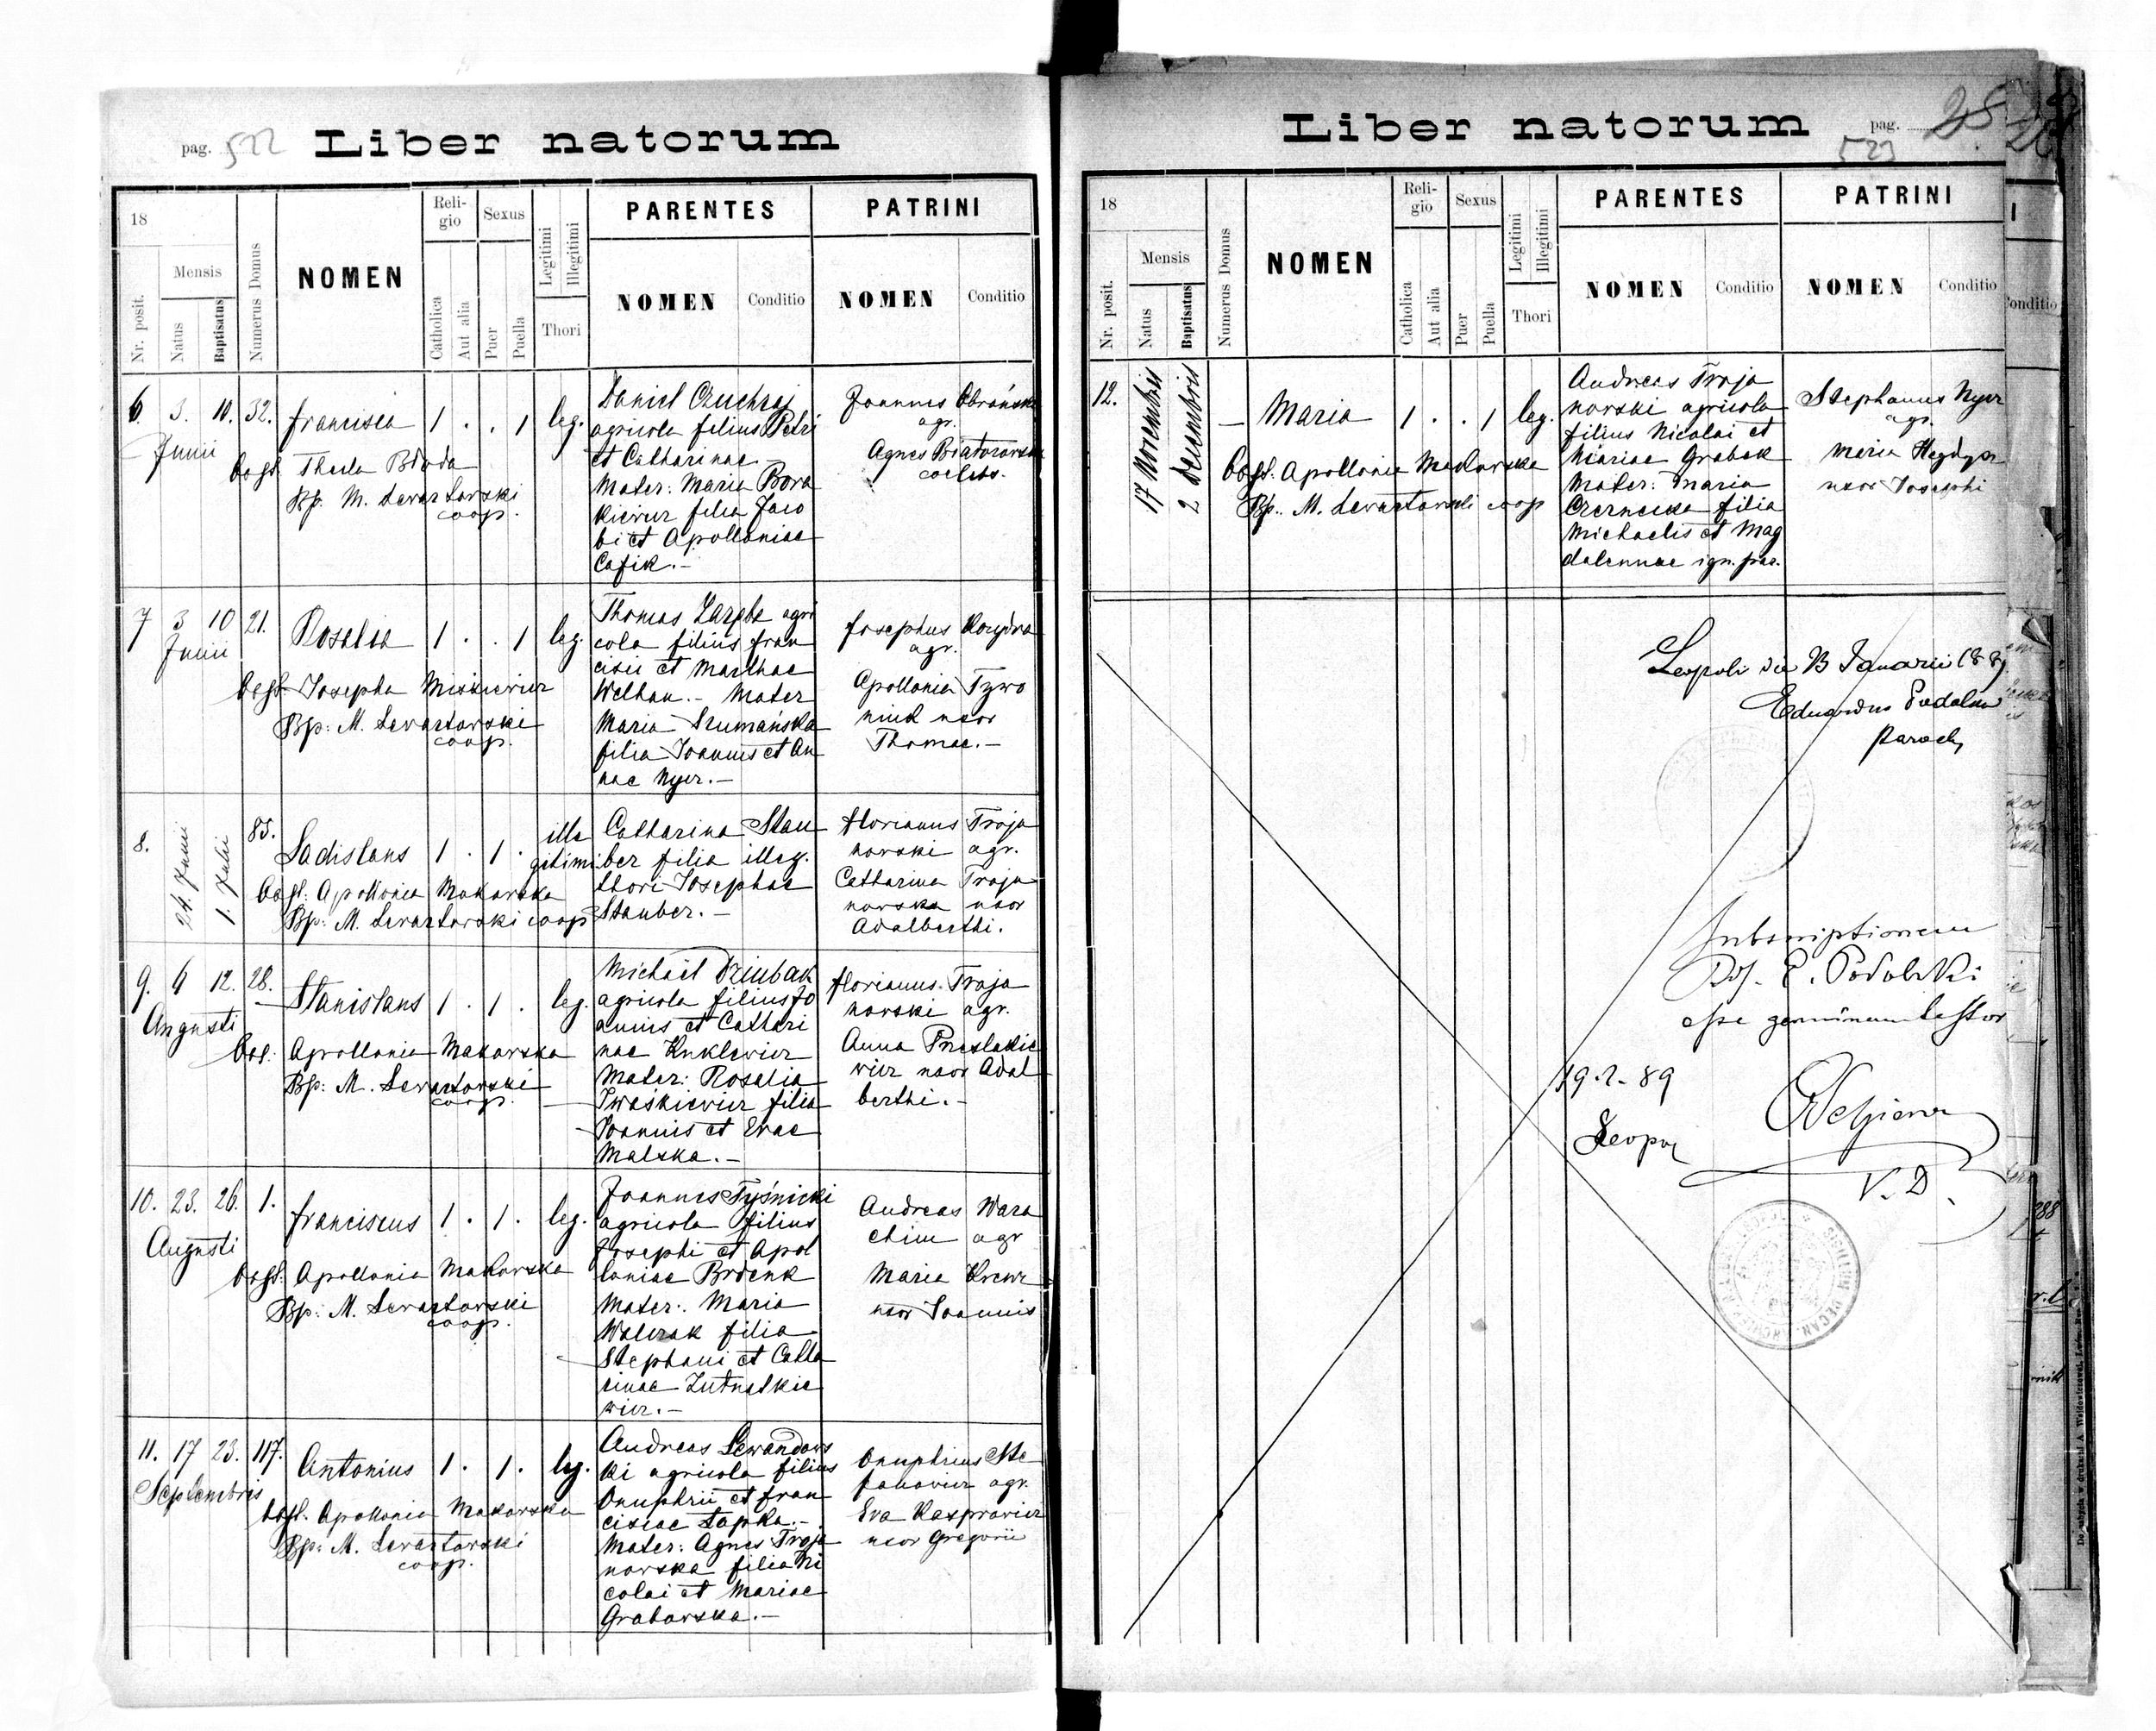 pag. 522 Liber natorum
18
Nr. posit.
Mensis
Natus
Baptisatus
Numerus Domus
NOMEN
Reli-
gio
Catholica
Aut alia
Sexus
Puer
Puella
Legitimi
Illegitimi
Thori
PARENTES
NOMEN
Conditio
PATRINI
NOMEN
Conditio
6. 3. 10. 32.
Junii
Francisca 1 . . 1 leg.
obst. Thecla
Bp. M. Lewartowski
coop.
Daniel Czuchraj
agricola filius Petri
et Catharinae
Mater: Maria Boro
kiewicz filia Jaco
bi et Apolloniae
Cafik.-
Joannes
agr.
Agnes
coelebs.
7 3 10 21.
Junii
Rosalia 1 . . 1 leg.
obst. Josepha Miskiewicz
Bp: M. Lewartowski
coop.
Thomas Zaręba agri
cola filius Fran
cisci et Marthae
Welhan.- Mater
Maria Szumańska
filia Joannis et An
nae Nyer.-
Josephus Korydra
agr.
Apollonia Tywo
niuk uxor
Thomae.-
8. 24. Junii 1. Julii 85.
Ladislaus 1 . 1 . ille
gitimi
obst: Apollonia Makarska
Bp: M. Lewartowski coop
Catharina Stau
ber filia illeg.
thori Josephae
Stauber.-
Florianus Troja
nowski agr.
Catharina Troja
nowska uxor
Adalberthi.
9. 6 12. 28.
Augusti
Stanislaus 1 . 1 . leg.
obs: Apollonia Makarska
Bp: M. Lewartowski
coop.
Michaël Dziubak
agricola filius Jo
annis et Cathari
nae Kuklewicz
Mater: Rosalia
Iwaśkiewicz filia
Joannis et Evae
Malska.-
Florianus Troja
nowski agr.
Anna Preslakie
wicz uxor Adal
berthi.-
10. 23. 26. 1.
Augusti
Franciscus 1 . 1 . leg.
obst: Apollonia Makarska
Bp: M. Lewartowski
coop.
Joannes Tyśnicki
agricola filius
Josephi et Apol
loniae
Mater: Maria
Walczak filia
Stephani et Catha
rinae Lutnalkie
wicz.-
Andreas Wara
chim agr
Maria
uxor Joannis
11. 17 23. 117.
Septembris
Antonius 1 . 1 . leg.
obst. Apollonia Makarska
Bp: M. Lewartowski
coop.
Andreas Lewandows
ki agricola filius
Onuphrii et Fran
ciscae Łapka.-
Mater: Agnes Troja
nowska filia Ni
colai et Mariae
Grabowska.-
Onuphrius Ste
fanowicz agr.
Eva Kasprowicz
uxor Gregorii
Liber natorum pag. 523
18
Nr. posit.
Mensis
Natus
Baptisatus
Numerus Domus
NOMEN
Reli-
gio
Catholica
Aut alia
Sexus
Puer
Puella
Legitimi
Illegitimi
Thori
PARENTES
NOMEN
Conditio
PATRINI
NOMEN
Conditio
12. 17 Novembris 2 Decembris
- Maria 1 . . 1 leg.
obst. Apollonia Makarska
Bp. M. Lewartowski coop
Andreas Troja
nowski agricola
filius Nicolai et
Mariae Grabek
Mater: Maria
Czernecka filia
Michaelis et Mag
dalennae ign. par.
Stephanus Nyer
agr.
Maria
uxor Josephi
Leopoli die 13 Januarii 1889
Eduardus Podolski
Paroch
Subscriptionem
E. Podolski
esse genuinam testor
19.1.89
Leopol
V. D.